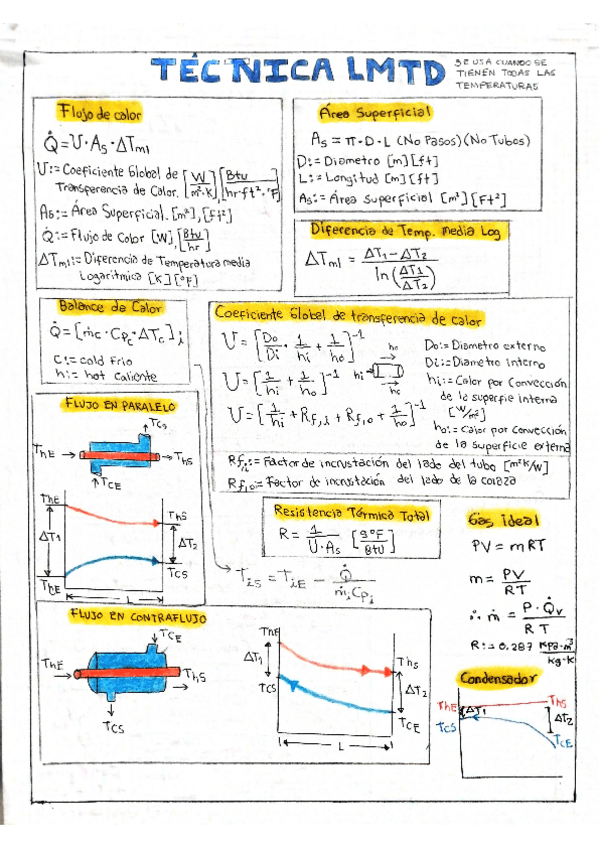 TÉCNICA LMTD
SE USA CUANDO SE
TIENEN TODAS LAS
TEMPERATURAS
Flujo de calor
Q̇=U·As·ΔTml
U:= Coeficiente Global de [W/m²·K], [Btu/hr·ft²·°F]
Transferencia de Calor.
As:= Área Superficial. [m²], [ft²]
Q̇:= Flujo de Calor [W], [Btu/hr]
ΔTml:= Diferencia de Temperatura media
Logarítmica [K] [°F]
Área Superficial
As = π·D·L (No Pasos)(No Tubos)
D:= Diametro [m][ft]
L:= Longitud [m][ft]
As:= Área Superficial [m²] [Ft²]
Diferencia de Temp. media Log
ΔTml = (ΔT1-ΔT2)/ln(ΔT1/ΔT2)
Balance de Calor
Q̇=[ṁc·Cpc·ΔTc]i
C:= cold frio
h:= hot caliente
Coeficiente Global de transferencia de calor
U=[Do/Di · 1/hi + 1/ho]⁻¹
U=[1/hi + 1/ho]⁻¹
U=[1/hi + Rf,i + Rf,o + 1/ho]⁻¹
ho
hi
Do:= Diametro externo
Di:= Diametro interno
hi:= Calor por Convección
de la superfie interna
[W/m²]
ho:= Calor por Convección
de la superficie externa
Rf,i:= Factor de incrustación del lado del tubo [m²K/W]
Rf,o:= Factor de incrustación del lado de la coraza
FLUJO EN PARALELO
TCS
ThE
ThS
TCE
ThE
ThS
ΔT1
ΔT2
TCS
ThE
L
Resistencia Térmica Total
R = 1/(U·As)
Tis = TiE - Q̇/(ṁi Cpi)
Gas ideal
PV = mRT
m = PV/RT
∴ ṁ = P·Q̇v/RT
R:= 0.287 KPa·m³/kg·K
FLUJO EN CONTRAFLUJO
TCE
ThE
ThS
TCS
ThE
ΔT1
TCS
ThS
ΔT2
TCE
L
Condensador
ThE
ThS
ΔT1
ΔT2
TCS
TCE